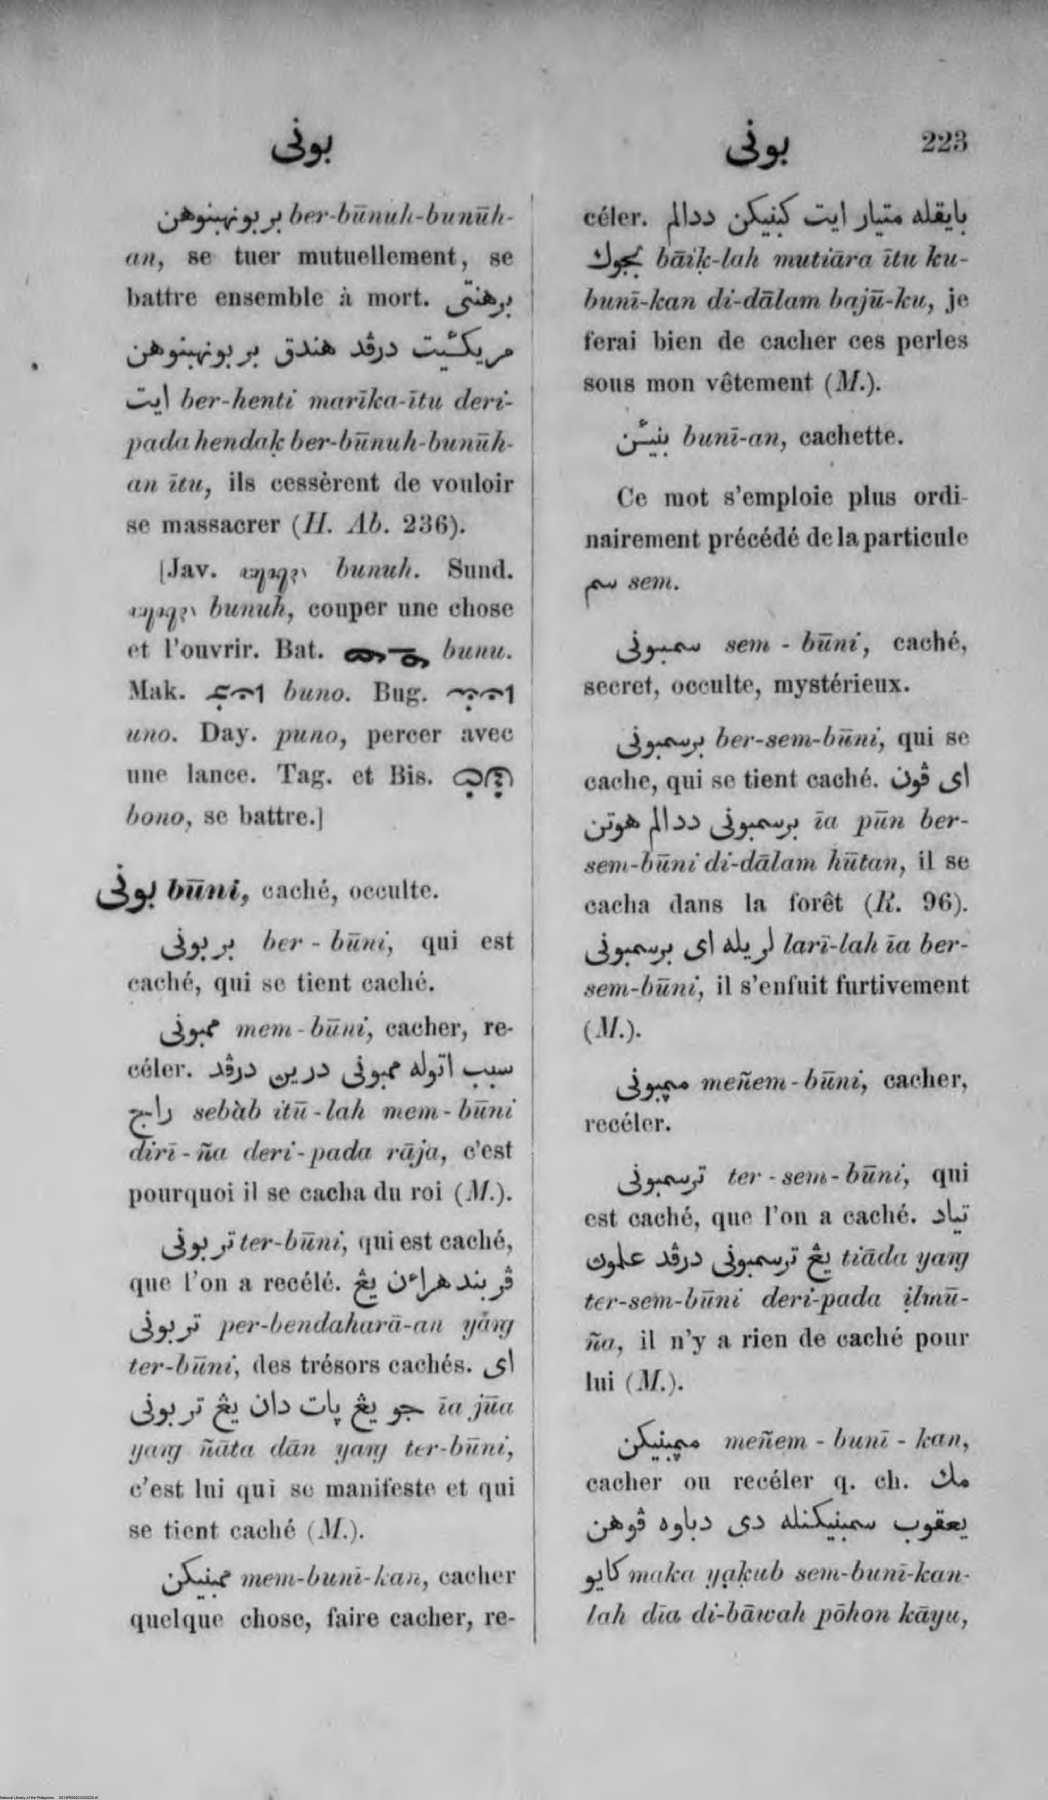 بونی
بونی 223
بربونهبنوهن ber-būnuh-bunūh-
an, se tuer mutuellement, se
battre ensemble à mort. برهنتی
مریکئیت درڤد هندق بربونهبنوهن
ایت ber-henti marīka-ītu deri-
pada hendaḳ ber-būnuh-bunūh-
an ītu, ils cessèrent de vouloir
se massacrer (H. Ab. 236).
[Jav. bunuh. Sund.
bunuh, couper une chose
et l'ouvrir. Bat. bunu.
Mak. buno. Bug.
uno. Day. puno, percer avec
une lance. Tag. et Bis.
bono, se battre.]
بونی būni, caché, occulte.
بربونی ber-būni, qui est
caché, qui se tient caché.
ممبونی mem-būni, cacher, re-
céler. سبب اتوله ممبونی درین درڤد
راج sebàb itū-lah mem-būni
dirī-ña deri-pada rāja, c'est
pourquoi il se cacha du roi (M.).
تربونی ter-būni, qui est caché,
que l'on a recélé. ڤربندهراءن یڠ
تربونی per-bendaharā-an yàṅg
ter-būni, des trésors cachés. ای
جو یڠ پات دان یڠ تربونی īa jūa
yaṅg ñāta dān yaṅg ter-būni,
c'est lui qui se manifeste et qui
se tient caché (M.).
ممبنیکن mem-bunī-kan, cacher
quelque chose, faire cacher, re-
céler. بایقله متیار ایت کبنیکن ددالم
بجوك bāiḳ-lah mutiāra ītu ku-
bunī-kan di-dālam bajū-ku, je
ferai bien de cacher ces perles
sous mon vêtement (M.).
بنیئن bunī-an, cachette.
Ce mot s'emploie plus ordi-
nairement précédé de la particule
سم sem.
سمبونی sem-būni, caché,
secret, occulte, mystérieux.
برسمبونی ber-sem-būni, qui se
cache, qui se tient caché. ای ڤون
برسمبونی ددالم هوتن īa pūn ber-
sem-būni di-dālam hūtan, il se
cacha dans la forêt (R. 96).
لریله ای برسمبونی larī-lah īa ber-
sem-būni, il s'enfuit furtivement
(M.).
مپمبونی meñem-būni, cacher,
recéler.
ترسمبونی ter-sem-būni, qui
est caché, que l'on a caché. تیاد
یڠ ترسمبونی درڤد علمون tiāda yaṅg
ter-sem-būni deri-pada ịlmū-
ña, il n'y a rien de caché pour
lui (M.).
مپمبنیکن meñem-bunī-kan,
cacher ou recéler q. ch. مك
یعقوب سمبنیکنله دی دباوه ڤوهن
کایو maka yạḳub sem-bunī-kan-
lah dīa di-bāwah pōhon kāyu,